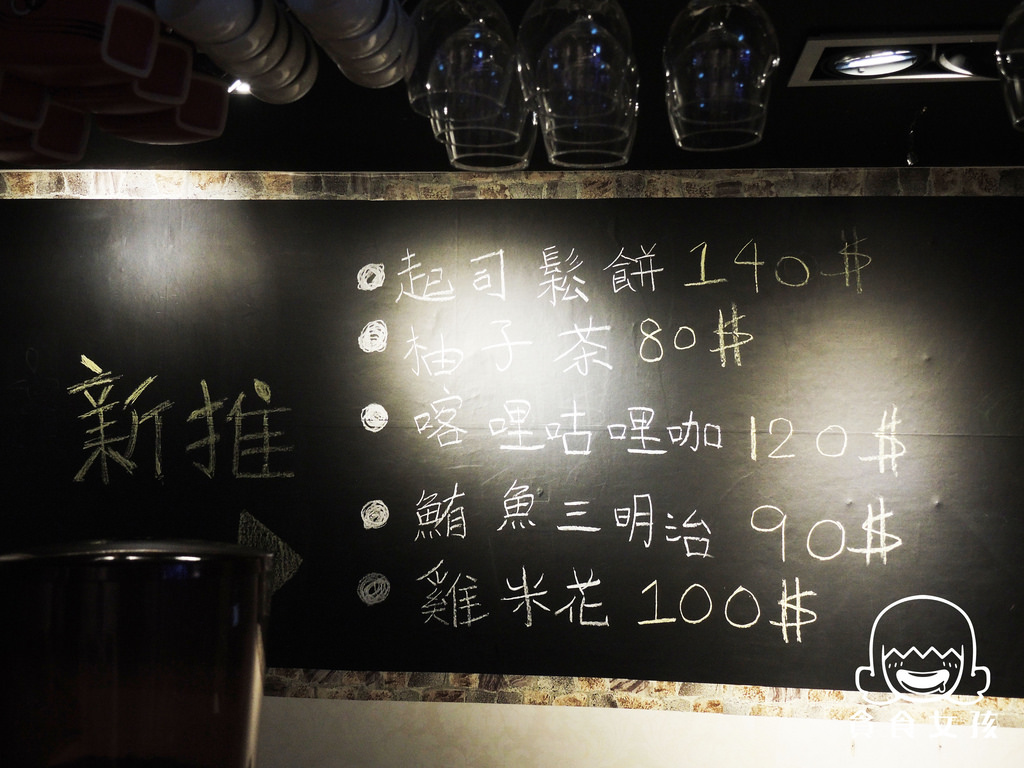 新推
起司鬆餅 140$
柚子茶 80$
喀哩咕哩咖 120$
鮪魚三明治 90$
雞米花 100$
貪食女孩